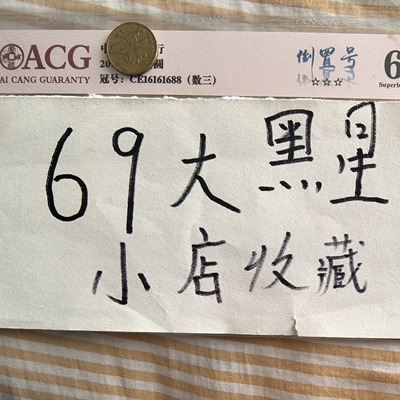 ACG
AI CANG GUARANTY
中 行
20 阔
冠号：CE16161688（数三）
倒置号
☆☆☆
6
Superb
69大黑星
小店收藏